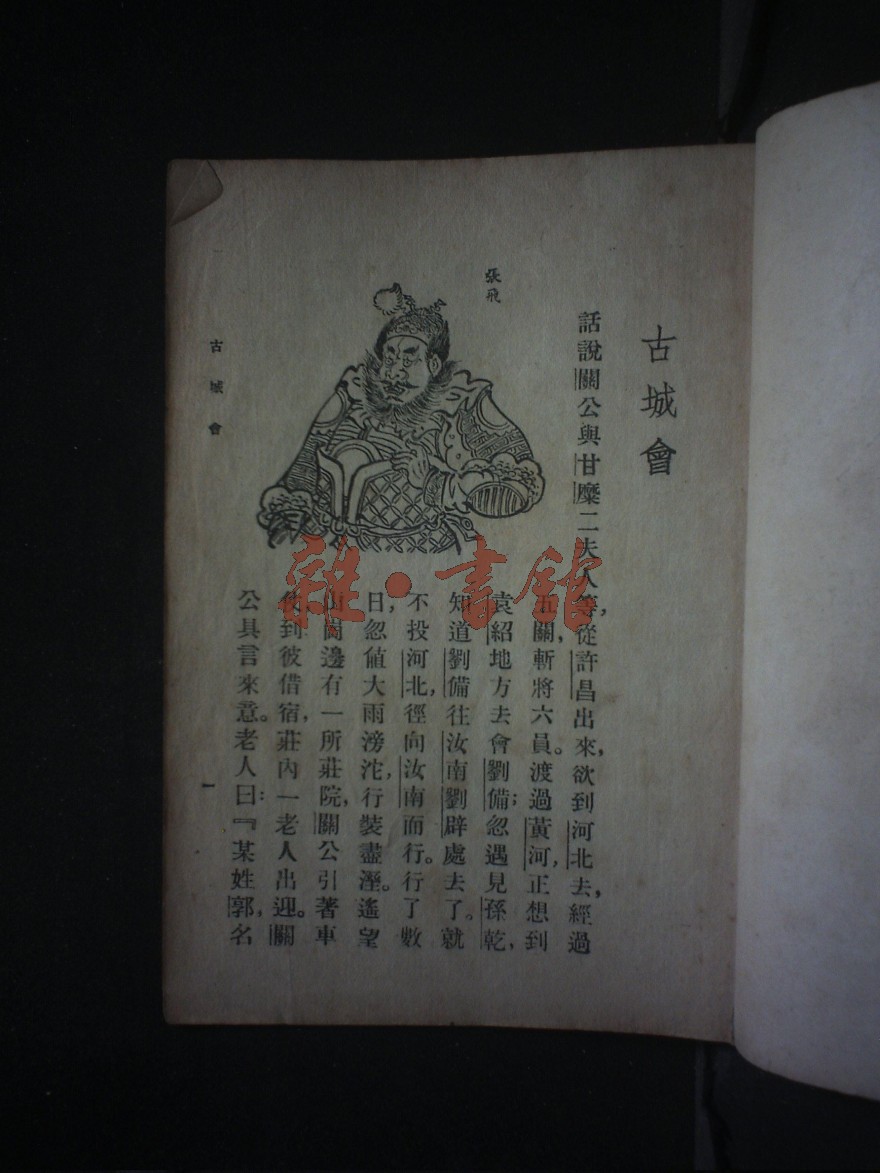 古城會
話說關公與甘糜二夫人等，從許昌出來，欲到河北去，經過
五關，斬將六員。渡過黃河，正想到
袁紹地方去會劉備；忽遇見孫乾，
知道劉備往汝南劉辟處去了。就
不投河北，徑向汝南而行。行了數
日，忽值大雨滂沱，行裝盡溼。遙望
山岡邊有一所莊院，關公引著車
仗，到彼借宿，莊內一老人出迎。關
公具言來意。老人曰：『某姓郭，名
張飛
古城會
一
雜·書館